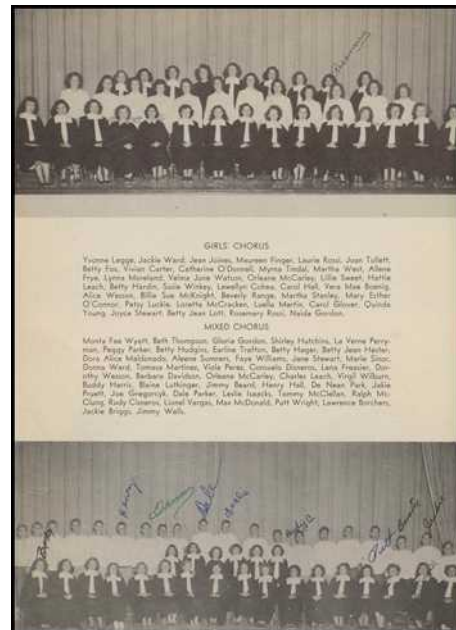 Rosemary
GIRLS' CHORUS
Yvonne Legge, Jackie Ward, Jean Joines, Maureen Finger, Laurie Rossi, Joan Tullett,
Betty Fox, Vivian Carter, Catherine O'Donnell, Myrna Tindal, Martha West, Allene
Frye, Lynna Moreland, Velma June Watson, Orleane McCarley, Lillie Sweet, Hattie
Leach, Betty Hardin, Susie Winkey, Lewellyn Cohea, Carol Hall, Vera Mae Boenig,
Alice Wesson, Billie Sue McKnight, Beverly Range, Martha Stanley, Mary Esther
O'Connor, Patsy Luckie, Lanette McCracken, Luella Martin, Carol Glover, Quinda
Young, Joyce Stewart, Betty Jean Lott, Rosemary Rossi, Naida Gordon.
MIXED CHORUS
Monta Fae Wyatt, Beth Thompson, Gloria Gordon, Shirley Hutchins, La Verne Perry-
man, Peggy Parker, Betty Hudgins, Earline Trafton, Betty Hager, Betty Jean Hester,
Dora Alice Maldonado, Aleene Sumners, Faye Williams, Jane Stewart, Marie Siroc,
Donna Ward, Tomasa Martinez, Viola Perez, Consuelo Cisneros, Lena Frassier, Dor-
othy Wesson, Barbara Davidson, Orleane McCarley, Charles Leach, Virgil Wilburn,
Buddy Harris, Blaine Luthinger, Jimmy Beard, Henry Hall, De Nean Park, Jakie
Pruett, Joe Gregorcyk, Dale Parker, Leslie Isaacks, Tommy McClellan, Ralph Mc-
Clung, Rudy Cisneros, Lionel Vargas, Max McDonald, Putt Wright, Lawrence Borchers,
Jackie Briggs, Jimmy Walls.
Henry
Dale